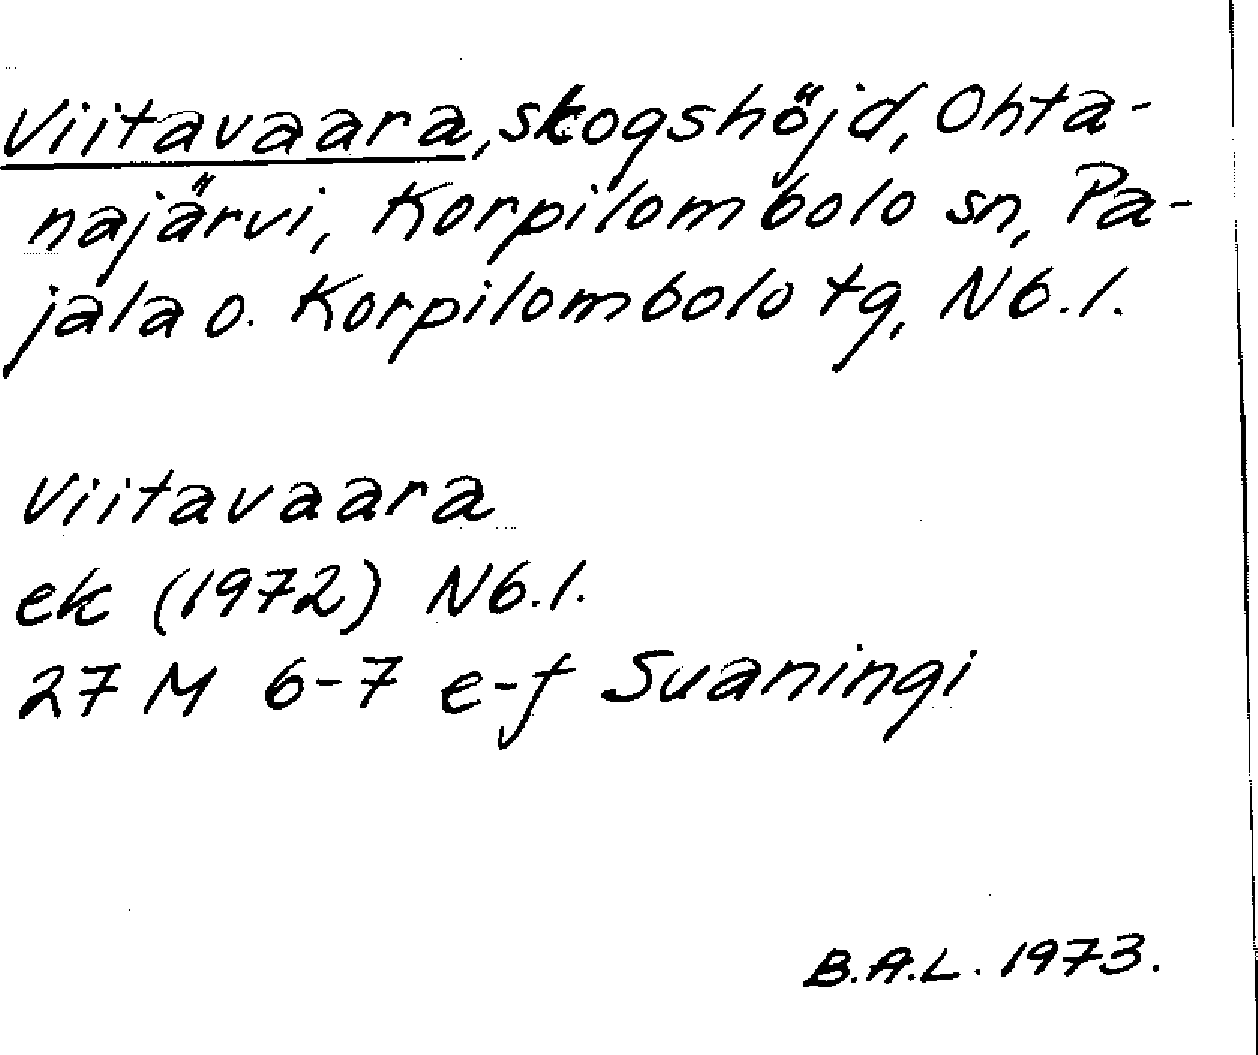 Viitavaara, skogshöjd, Ohta-
najärvi, Korpilombolo sn, Pa-
jala o. Korpilombolo tg, Nb.l.
Viitavaara
ek (1972) Nb.l.
27 M 6-7 e-f Suaningi
B.A.L. 1973.